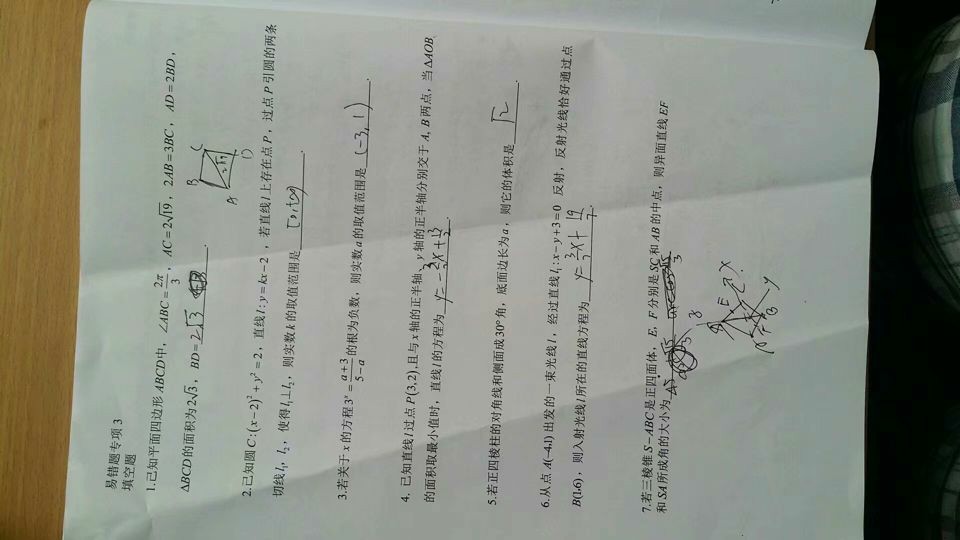 易错题专项 3
填空题
1.已知平面四边形 ABCD 中，∠ABC=2π/3，AC=2√19，2AB=3BC，AD=2BD，
ΔBCD的面积为2√3，BD=2√3.
A B C D
2.已知圆C:(x-2)²+y²=2，直线l:y=kx-2，若直线l上存在点P，过点P引圆的两条
切线l₁，l₂，使得l₁⊥l₂，则实数k的取值范围是[0,+∞).
3.若关于x的方程3ˣ=(a+3)/(5-a)的根为负数，则实数a的取值范围是(-3,1).
4. 已知直线l过点P(3,2),且与x轴的正半轴,y轴的正半轴分别交于A,B两点，当ΔAOB
的面积取最小值时，直线l的方程为
5.若正四棱柱的对角线和侧面成30°角，底面边长为a，则它的体积是√2.
6.从点A(-4,1)出发的一束光线l，经过直线l₁:x-y+3=0 反射，反射光线恰好通过点
B(1,6)，则入射光线l所在的直线方程为
7.若三棱锥S-ABC是正四面体，E，F分别是SC和AB的中点，则异面直线EF
和SA所成角的大小为
E x
F B y